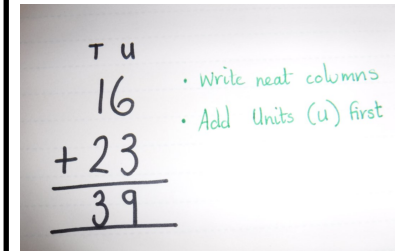 T U
16
+ 23
39
• Write neat columns
• Add Units (u) first